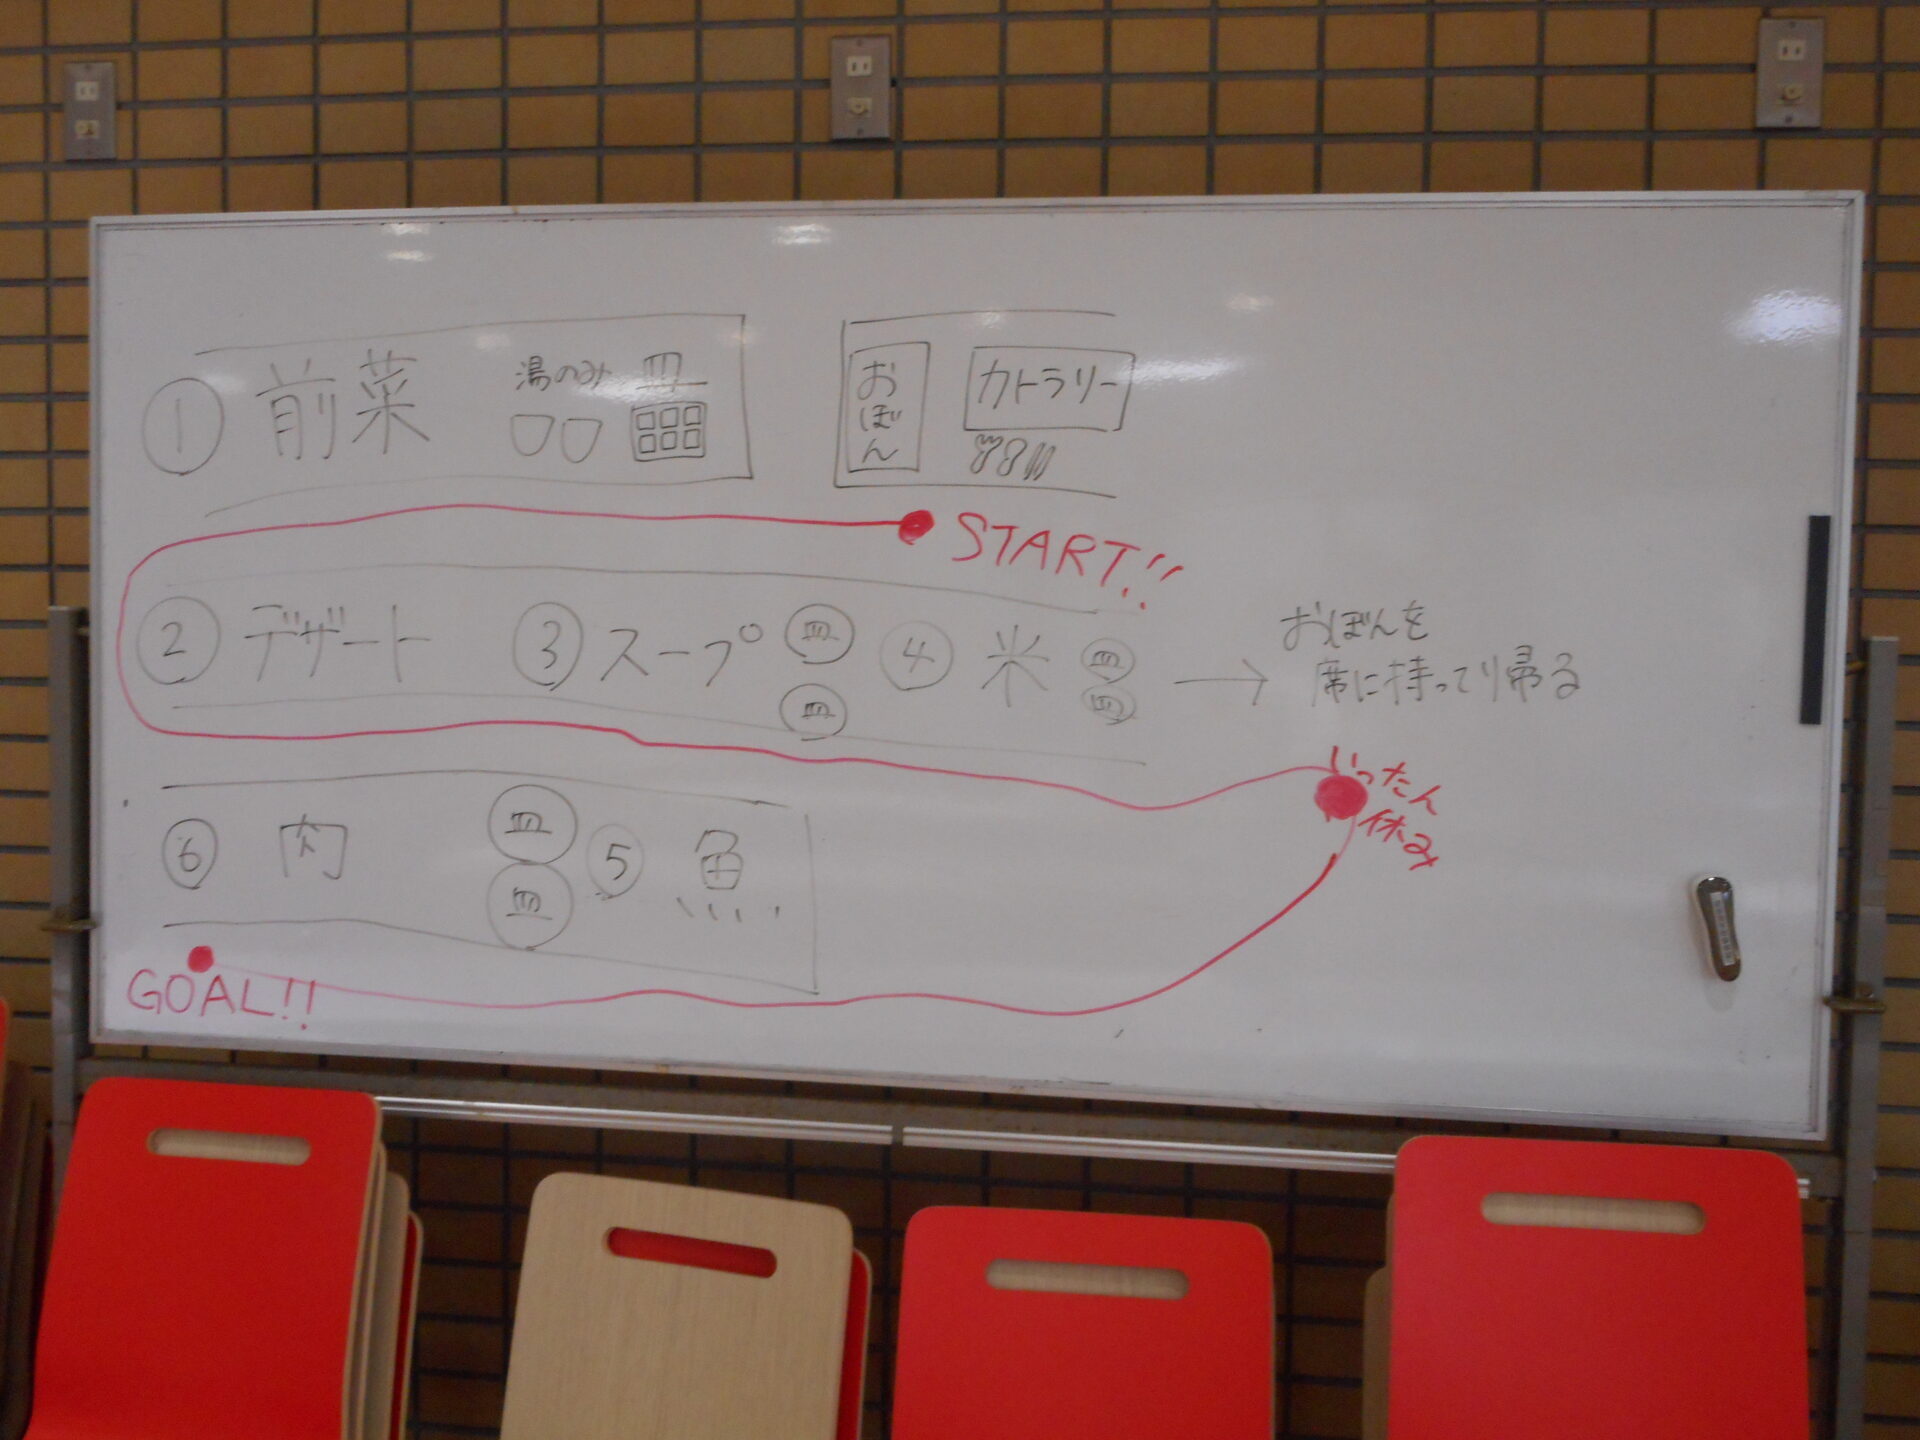 ① 前菜 湯のみ 皿
おぼん カトラリー
START!!
② デザート ③ スープ 皿 ④ 米 皿
皿 皿
おぼんを
席に持って帰る
いったん
休み
⑥ 肉 皿 ⑤ 魚
皿
GOAL!!